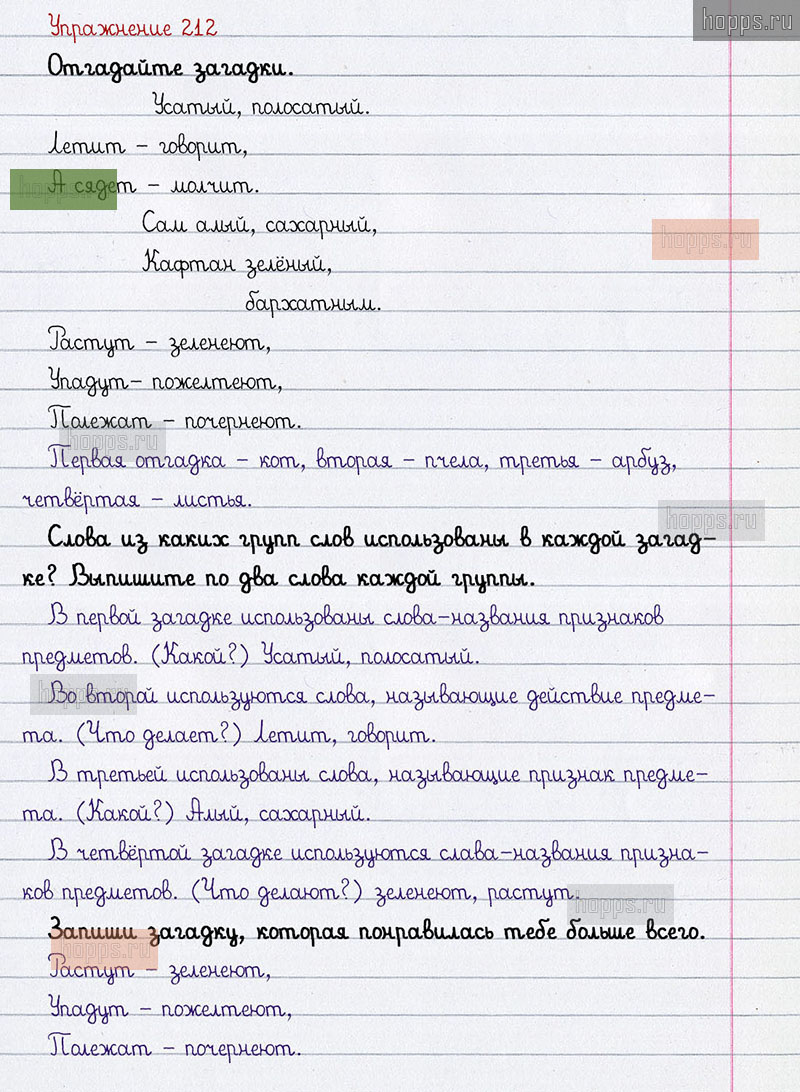 hopps.ru
Упражнение 212
Отгадайте загадки.
Усатый, полосатый.
Летит – говорит,
А сядет – молчит.
hopps.ru
Сам алый, сахарный,
hopps.ru
Кафтан зелёный,
бархатным.
Растут – зеленеют,
Упадут– пожелтеют,
Полежат – почернеют.
hopps.ru
Первая отгадка – кот, вторая – пчела, третья – арбуз,
четвёртая – листья.
hopps.ru
Слова из каких групп слов использованы в каждой загад-
ке? Выпишите по два слова каждой группы.
В первой загадке использованы слова-названия признаков
предметов. (Какой?) Усатый, полосатый.
Во второй используются слова, называющие действие предме-
hopps.ru
та. (Что делает?) Летит, говорит.
В третьей использованы слова, называющие признак предме-
та. (Какой?) Алый, сахарный.
В четвёртой загадке используются слава-названия призна-
ков предметов. (Что делают?) зеленеют, растут.
hopps.ru
Запиши загадку, которая понравилась тебе больше всего.
hopps.ru
Растут – зеленеют,
Упадут – пожелтеют,
Полежат – почернеют.